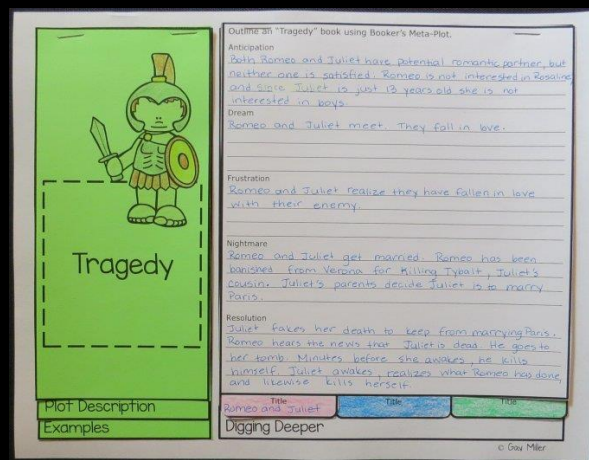 Tragedy
Plot Description
Examples
Outline an "Tragedy" book using Booker's Meta-Plot.
Anticipation
Both Romeo and Juliet have potential romantic partner, but
neither one is satisfied. Romeo is not interested in Rosaline,
and since Juliet is just 13 years old she is not
interested in boys.
Dream
Romeo and Juliet meet. They fall in love.
Frustration
Romeo and Juliet realize they have fallen in love
with their enemy.
Nightmare
Romeo and Juliet get married. Romeo has been
banished from Verona for killing Tybalt, Juliet's
cousin. Juliet's parents decide Juliet is to marry
Paris.
Resolution
Juliet fakes her death to keep from marrying Paris.
Romeo hears the news that Juliet is dead. He goes to
her tomb. Minutes before she awakes, he kills
himself. Juliet awakes, realizes what Romeo has done,
and likewise kills herself.
Title
Romeo and Juliet
Title
Title
Digging Deeper
© Gay Miller